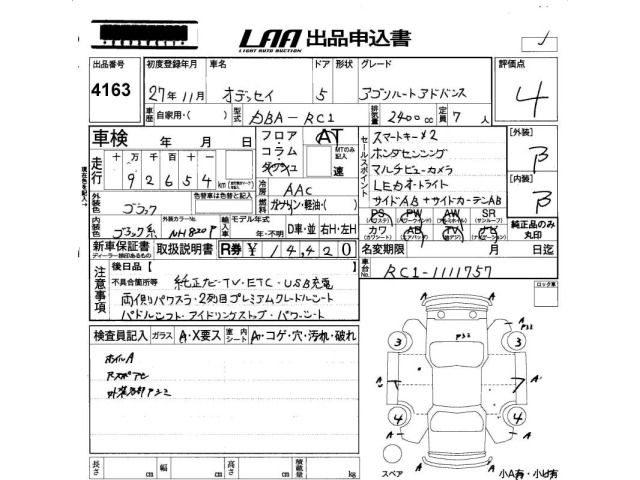 LAA 出品申込書
LIGHT AUTO AUCTION
出品番号 4163
初度登録年月 27年11月
車名 オデッセイ
ドア 5
形状
グレード アブソルート アドバンス
評価点 4
車歴 自家用・( )
型式 DBA-RC1
排気量 2400cc
定員 7人
車検 年 月 日
フロア・コラム・ダッシュ
AT
MTのみ記入
速
セールスポイント
スマートキー×2
ホンダセンシング
マルチビューカメラ
LEDオートライト
サイドAB+サイドカーテンAB
[外装] B
[内装] B
走行 十万千百十
92654km
冷房 AAC
燃料 ガソリン・軽油・( )
外装色 ブラック
色替車は色替と記入
内装色 ブラック系
外装カラーNo. NH820P
輸入車
モデル年式 年・不明
D車・並 右H・左H
PS PW AW SR
(パワステ) (パワーウィンド) (アルミホイル) (サンルーフ)
カワ AB TV ナビ
純正品のみ丸印
新車保証書
ディーラー捺印あるもの
取扱説明書
R券 ¥14,420
名変期限 月 日迄
車台No. RC1-1111757
注意事項
後日品【 】
不具合箇所等
純正ナビ・TV・ETC・USB充電
両側パワスラ・2列目プレミアムクレードルシート
パドルシフト・アイドリングストップ・パワーシート
検査員記入
ガラス A・X要ス
室内シート A・コゲ・穴・汚れ・破れ
ホイルA
ロック車
A
A
P32
P32
3
3
A
A
7
4
4
A
A
A
スペア
小A有・小U有
長さ cm 幅 cm 高さ cm 積載量 kg